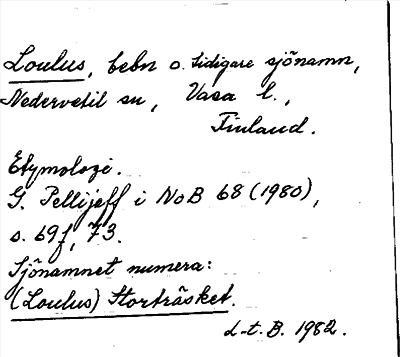 Loulus, bebn o. tidigare sjönamn,
Nedervetil sn, Vasa l.,
Finland.
Etymologi.
G. Pellijeff i NoB 68 (1980),
s. 69f, 73.
Sjönamnet numera:
(Loulus) Storträsket.
L-t. B. 1982.